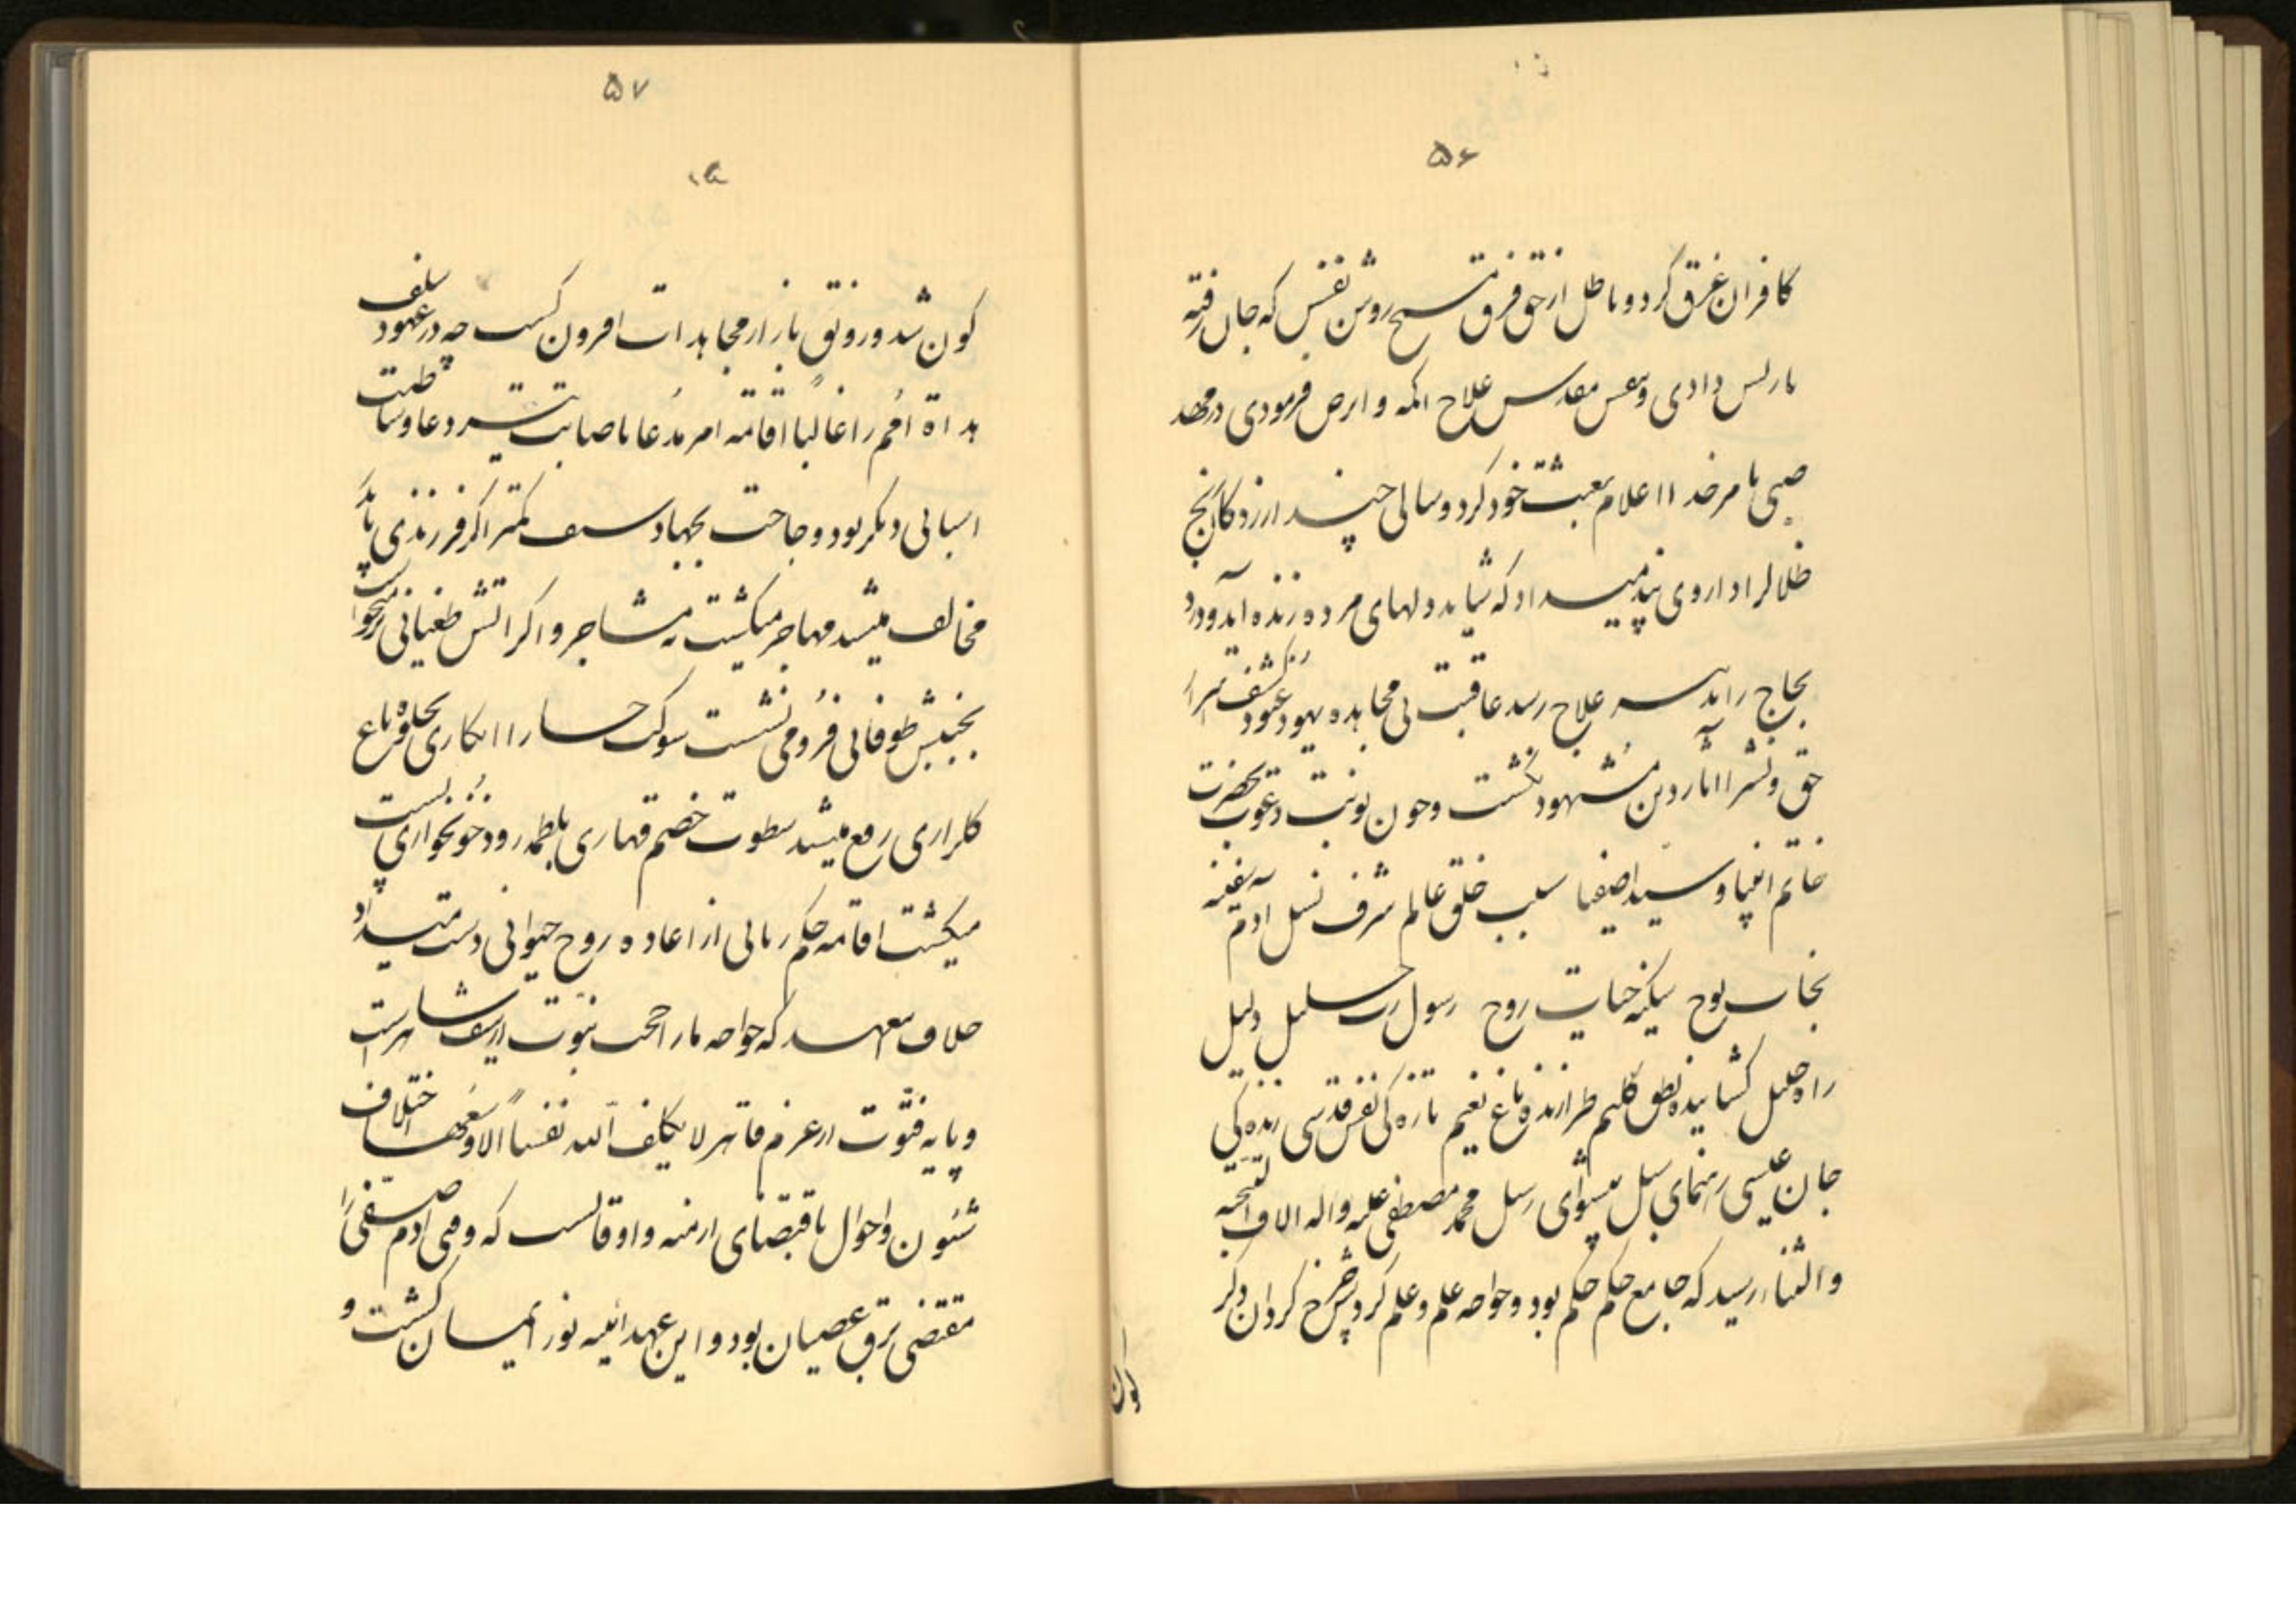 ۵۶
کافران غرق کرد و باطل از حق فرق مسیح روشن نفس که جان رفته
باز پس دادی و بنفس مقدس علاج اکمه و ابرص فرمودی در مهد
صبی با مر خدا اعلام بعثت خود کرد و سالی چند ارزدگان رنج
ظلال را داروی پند میداد که شاید دلهای مرده زنده آید و درد
لجاج را بدیهه علاج رسد عاقبت بی مجاهده یهود عنود کشف اسرار
حق و نشر آثار دین مشهود نگشت و چون نوبت دعوت بحضرت
خاتم انبیا و سید اصفیا سبب خلق عالم شرف نسل آدم سفینه
نجات نوح سکینه حیات روح رسول رب جلیل دلیل
راه خلیل گشاینده نطق کلیم طرازنده باغ نعیم تازه کن نفس قدسی زنده کن
جان عیسی رهنمای سبل پیشوای رسل محمد مصطفی علیه و اله الاف التحیه
والثنا رسید که جامع حکم حکم بود و خواجه علم و علم گردش چرخ گردان دگر
کون
۵۷
کون شد و رونق بازار مجاهدات افزون گشت چه در عهود سلف
هداة امم را غالبا اقامه امر مدعا باصابت تیر دعا و وساطت
اسبابی دیگر بود و حاجت بجهاد سیف کمتر اگر فرزندی با پدر
مخالف میشد مهاجر میگشت نه مشاجر و اگر آتش طغیانی بر میخواست
بجنبش طوفانی فرو می نشست شوکت حساد را انکاری بجلوه باغ
گلزاری رفع میشد سطوت خصم قهاری بلطمه رود خونخواری پست
میگشت اقامه حکم ربانی از اعاده روح حیوانی دست میداد
خلاف معهد که خواجه ما را حجت نبوت از سیف شاهر است
و پایه فتوت از عزم قاهر لا یکلف الله نفسا الا وسعها اختلاف
شئون و احوال باقتضای ازمنه و اوقاتست که وحی آدم صفی را
مقتضی ترق عصیان بود و این عهد آئینه نور ایمان گشت و